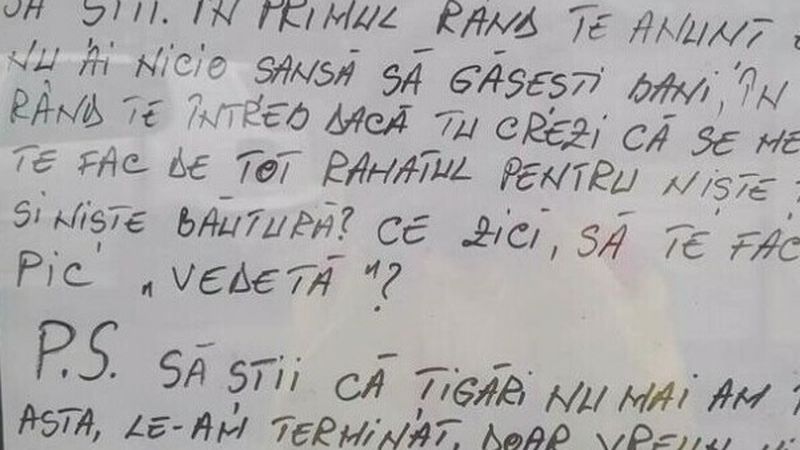 SĂ STII. IN PRIMUL RÂND TE ANUNT
NU AI NICIO SANSĂ SĂ GĂSEȘTI BANI, ÎN
RÂND TE ÎNTREB DACĂ TU CREZI CĂ SE ME
TE FAC DE TOT RAHATUL PENTRU NIȘTE
SI NIȘTE BĂUTURĂ? CE ZICI, SĂ TE FAC
PIC „VEDETĂ"?
P.S. SĂ STII CĂ ȚIGĂRI NU MAI AM
ASTA, LE-AM TERMINAT. DOAR VREUN